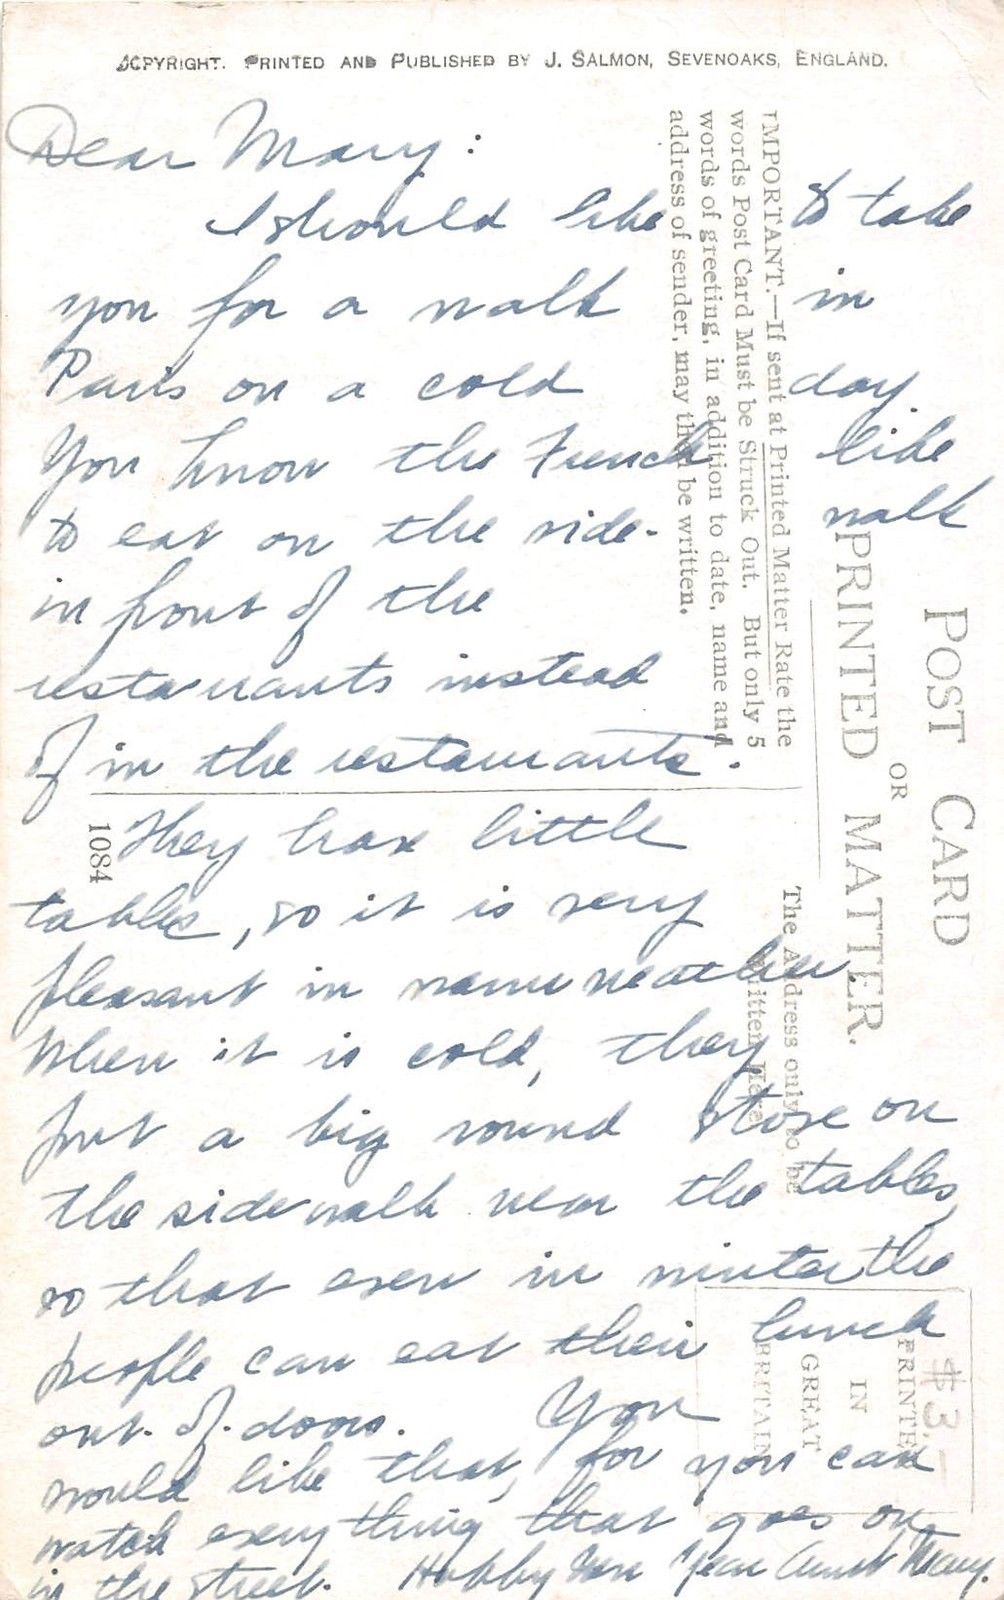 COPYRIGHT. PRINTED AND PUBLISHED BY J. SALMON, SEVENOAKS, ENGLAND.
Dear Mary:
I should like to take
you for a walk in
Paris on a cold day.
You know the French like
to eat on the side-walk
in front of the
restaurants instead
of in the restaurants.
They have little
tables, so it is very
pleasant in warm weather
When it is cold, they
put a big round stove on
the sidewalk near the tables,
so that even in winter the
people can eat their lunch
out-of-doors. You
would like that, for you can
watch everything that goes on
in the street. Happy New Year Aunt Mary.
IMPORTANT.—If sent at Printed Matter Rate the
words Post Card Must be Struck Out. But only 5
words of greeting, in addition to date, name and
address of sender, may then be written.
POST CARD
OR
PRINTED MATTER.
The Address only to be
Written Here
1084
PRINTED
IN
GREAT
BRITAIN
$3.-